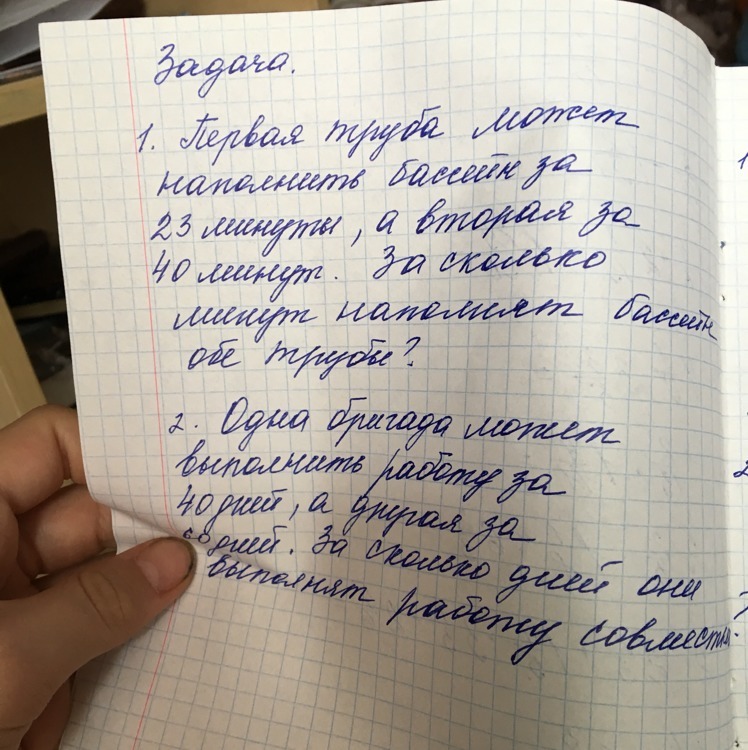 Задача.
1. Первая труба может
наполнить бассейн за
23 минуты, а вторая за
40 минут. За сколько
минут наполнят бассейн
обе трубы?
2. Одна бригада может
выполнить работу за
40 дней, а другая за
дней. За сколько дней они
выполнят работу